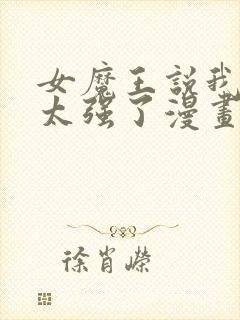 女魔王説我
太强了漫畫
徐肖嶸